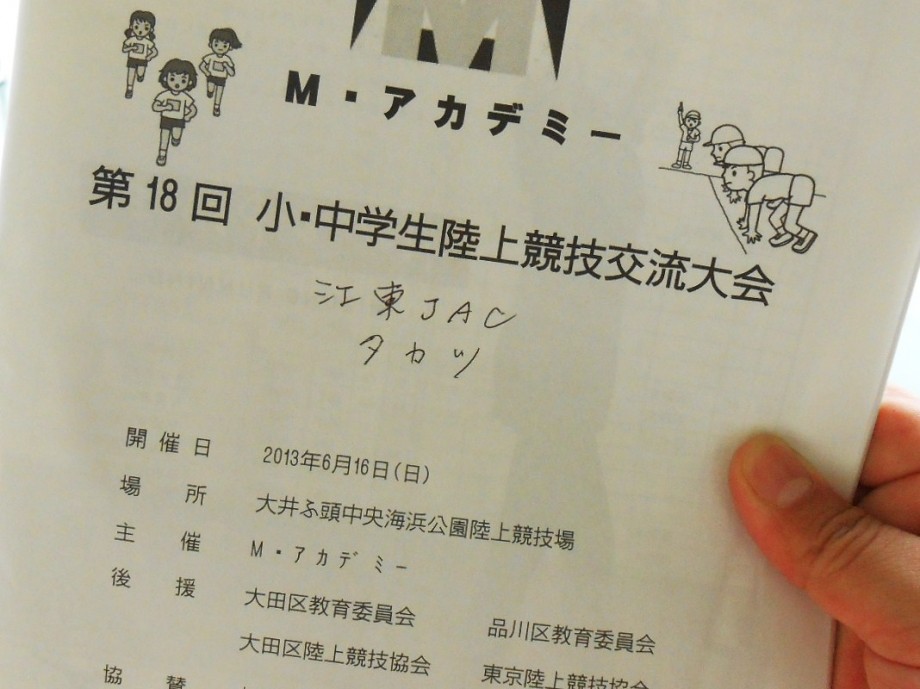 M・アカデミー
第18回 小・中学生陸上競技交流大会
江東JAC
タカツ
開催日 2013年6月16日(日)
場所 大井ふ頭中央海浜公園陸上競技場
主催 M・アカデミー
後援 大田区教育委員会 品川区教育委員会
大田区陸上競技協会 東京陸上競技協会
協賛